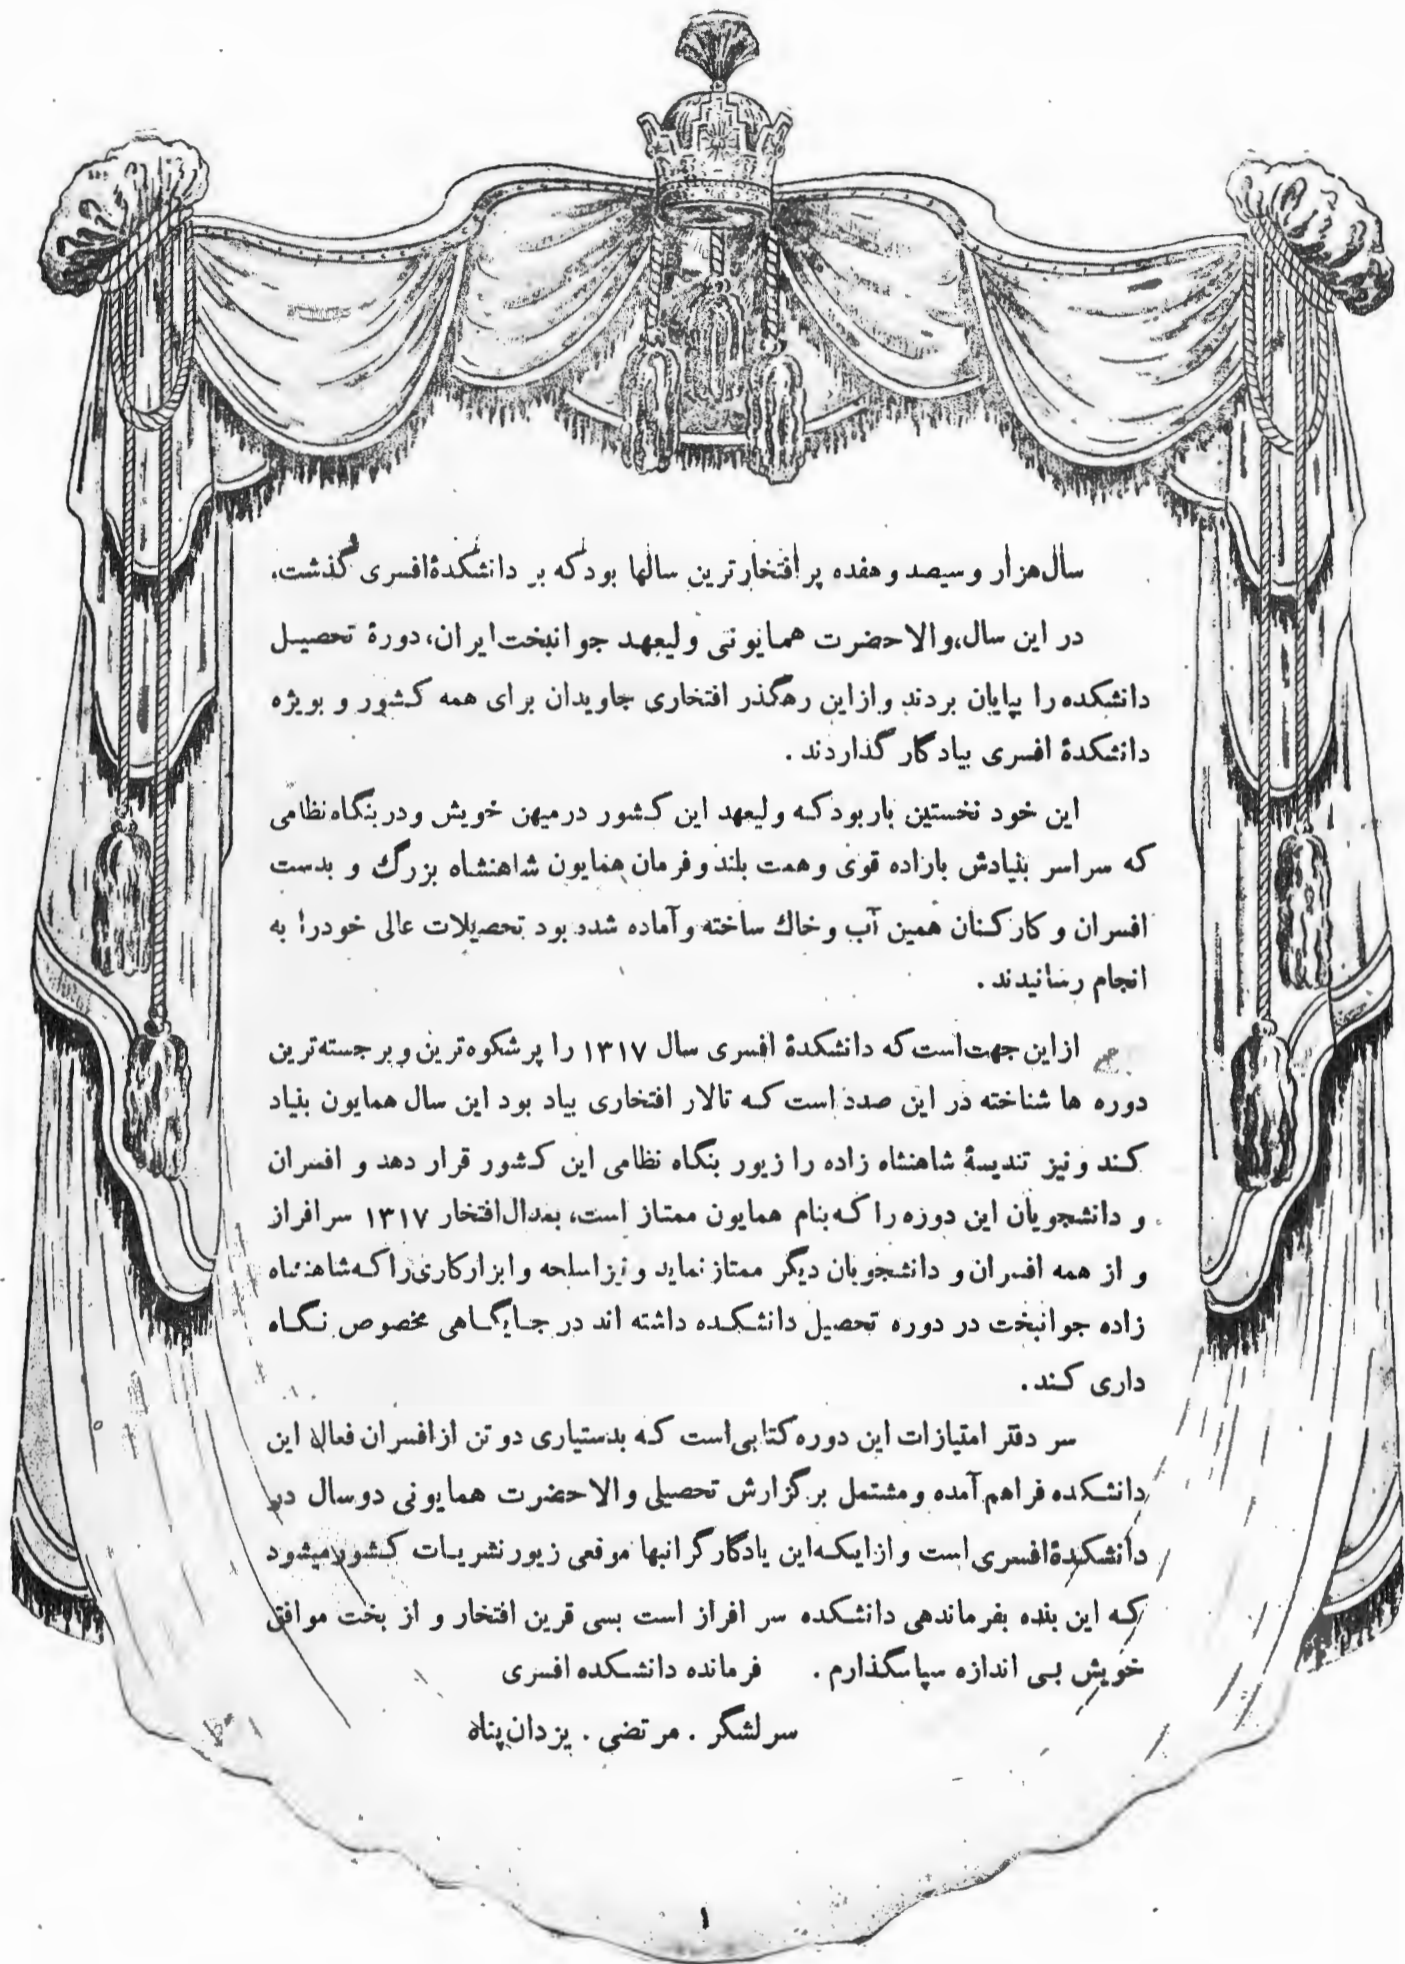 سال هزار و سیصد و هفده پر افتخار ترین سالها بود که بر دانشکدهٔ افسری گذشت.
در این سال، والاحضرت همایونی ولیعهد جوانبخت ایران، دورهٔ تحصیل
دانشکده را بپایان بردند و از این رهگذر افتخاری جاویدان برای همه کشور و بویژه
دانشکدهٔ افسری بیادگار گذاردند .
این خود نخستین بار بود که ولیعهد این کشور در میهن خویش و در بنگاه نظامی
که سراسر بنیادش باراده قوی و همت بلند و فرمان همایون شاهنشاه بزرگ و بدست
افسران و کارکنان همین آب و خاك ساخته و آماده شده بود تحصیلات عالی خود را به
انجام رسانیدند .
از این جهت است که دانشکدهٔ افسری سال ۱۳۱۷ را پر شکوه ترین و برجسته ترین
دوره ها شناخته در این صدد است که تالار افتخاری بیاد بود این سال همایون بنیاد
کند و نیز تندیسهٔ شاهنشاه زاده را زیور بنگاه نظامی این کشور قرار دهد و افسران
و دانشجویان این دوره را که بنام همایون ممتاز است، بمدال افتخار ۱۳۱۷ سرافراز
و از همه افسران و دانشجویان دیگر ممتاز نماید و نیز اسلحه و ابزار کاری را که شاهنشاه
زاده جوانبخت در دوره تحصیل دانشکده داشته اند در جایگاهی مخصوص نگاه
داری کند .
سر دفتر امتیازات این دوره کتابی است که بدستیاری دو تن از افسران فعال این
دانشکده فراهم آمده و مشتمل بر گزارش تحصیلی والاحضرت همایونی دو سال در
دانشکدهٔ افسری است و از اینکه این یادگار گرانبها موقعی زیور نشریات کشور میشود
که این بنده بفرماندهی دانشکده سر افراز است بسی قرین افتخار و از بخت موافق
خویش بی اندازه سپاسگذارم . فرمانده دانشکده افسری
سرلشگر . مرتضی . یزدان پناه
۱